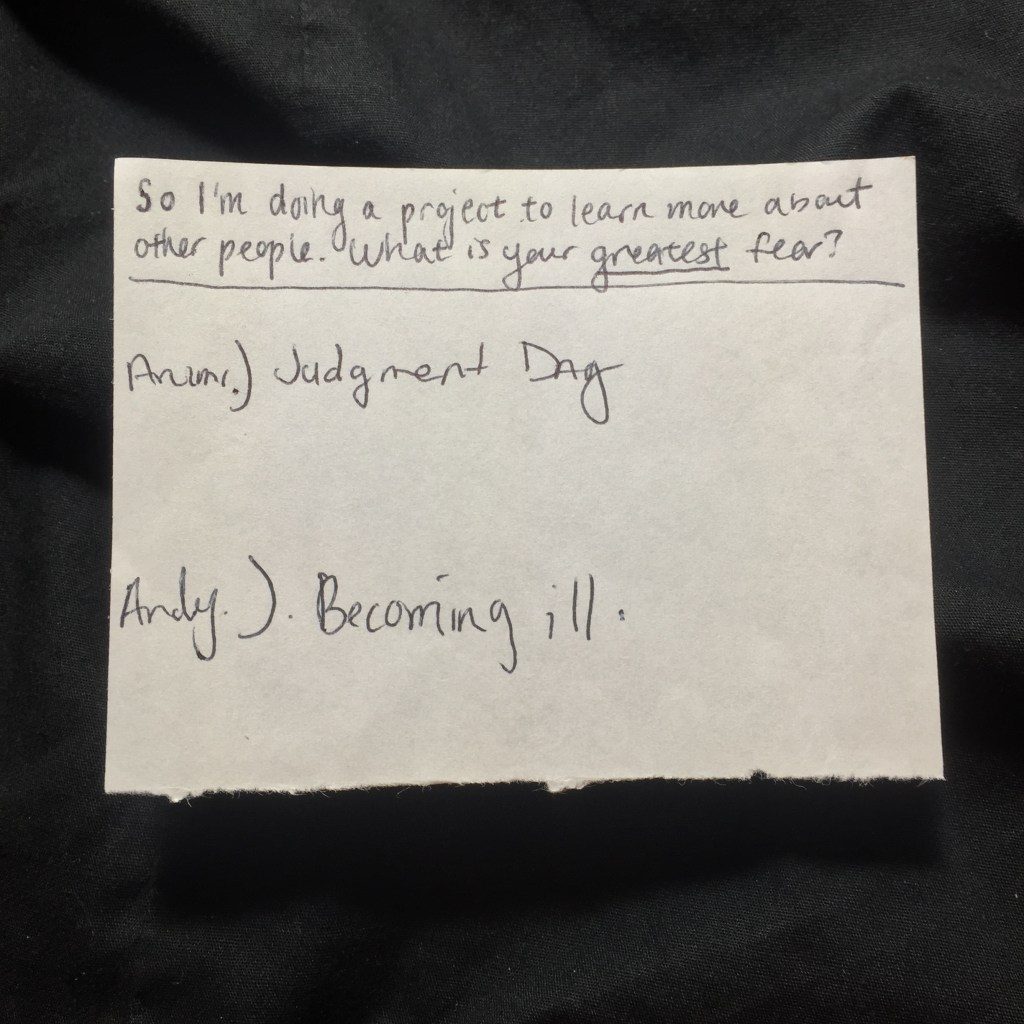 So I'm doing a project to learn more about
other people. What is your greatest fear?
Judgment Day
Andy.). Becoming ill.